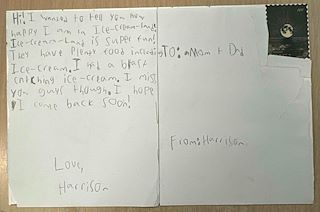 Hi! I wanted to tell you how
happy I am in Ice-cream-land.
Ice-cream-land is super fun!
They have plenty food including
Ice-cream. I had a blast
catching ice-cream. I miss
you guys though. I hope
I come back soon!
Love,
Harrison
TO: Mom + Dad
From: Harrison